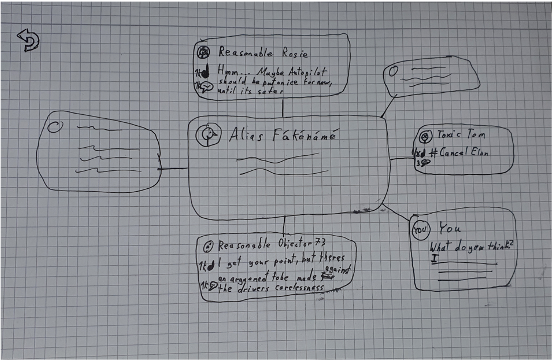 Reasonable Rosie
Hmm... Maybe Autopilot
1k
should be put on ice for now,
until its safer
Alias Fákénámé
Toxic Tom
#Cancel Elon
YOU
You
What do you think?
I
Reasonable Objector 73
1k
I get your point, but theres
an argument to be made against
1k
the drivers carelessness